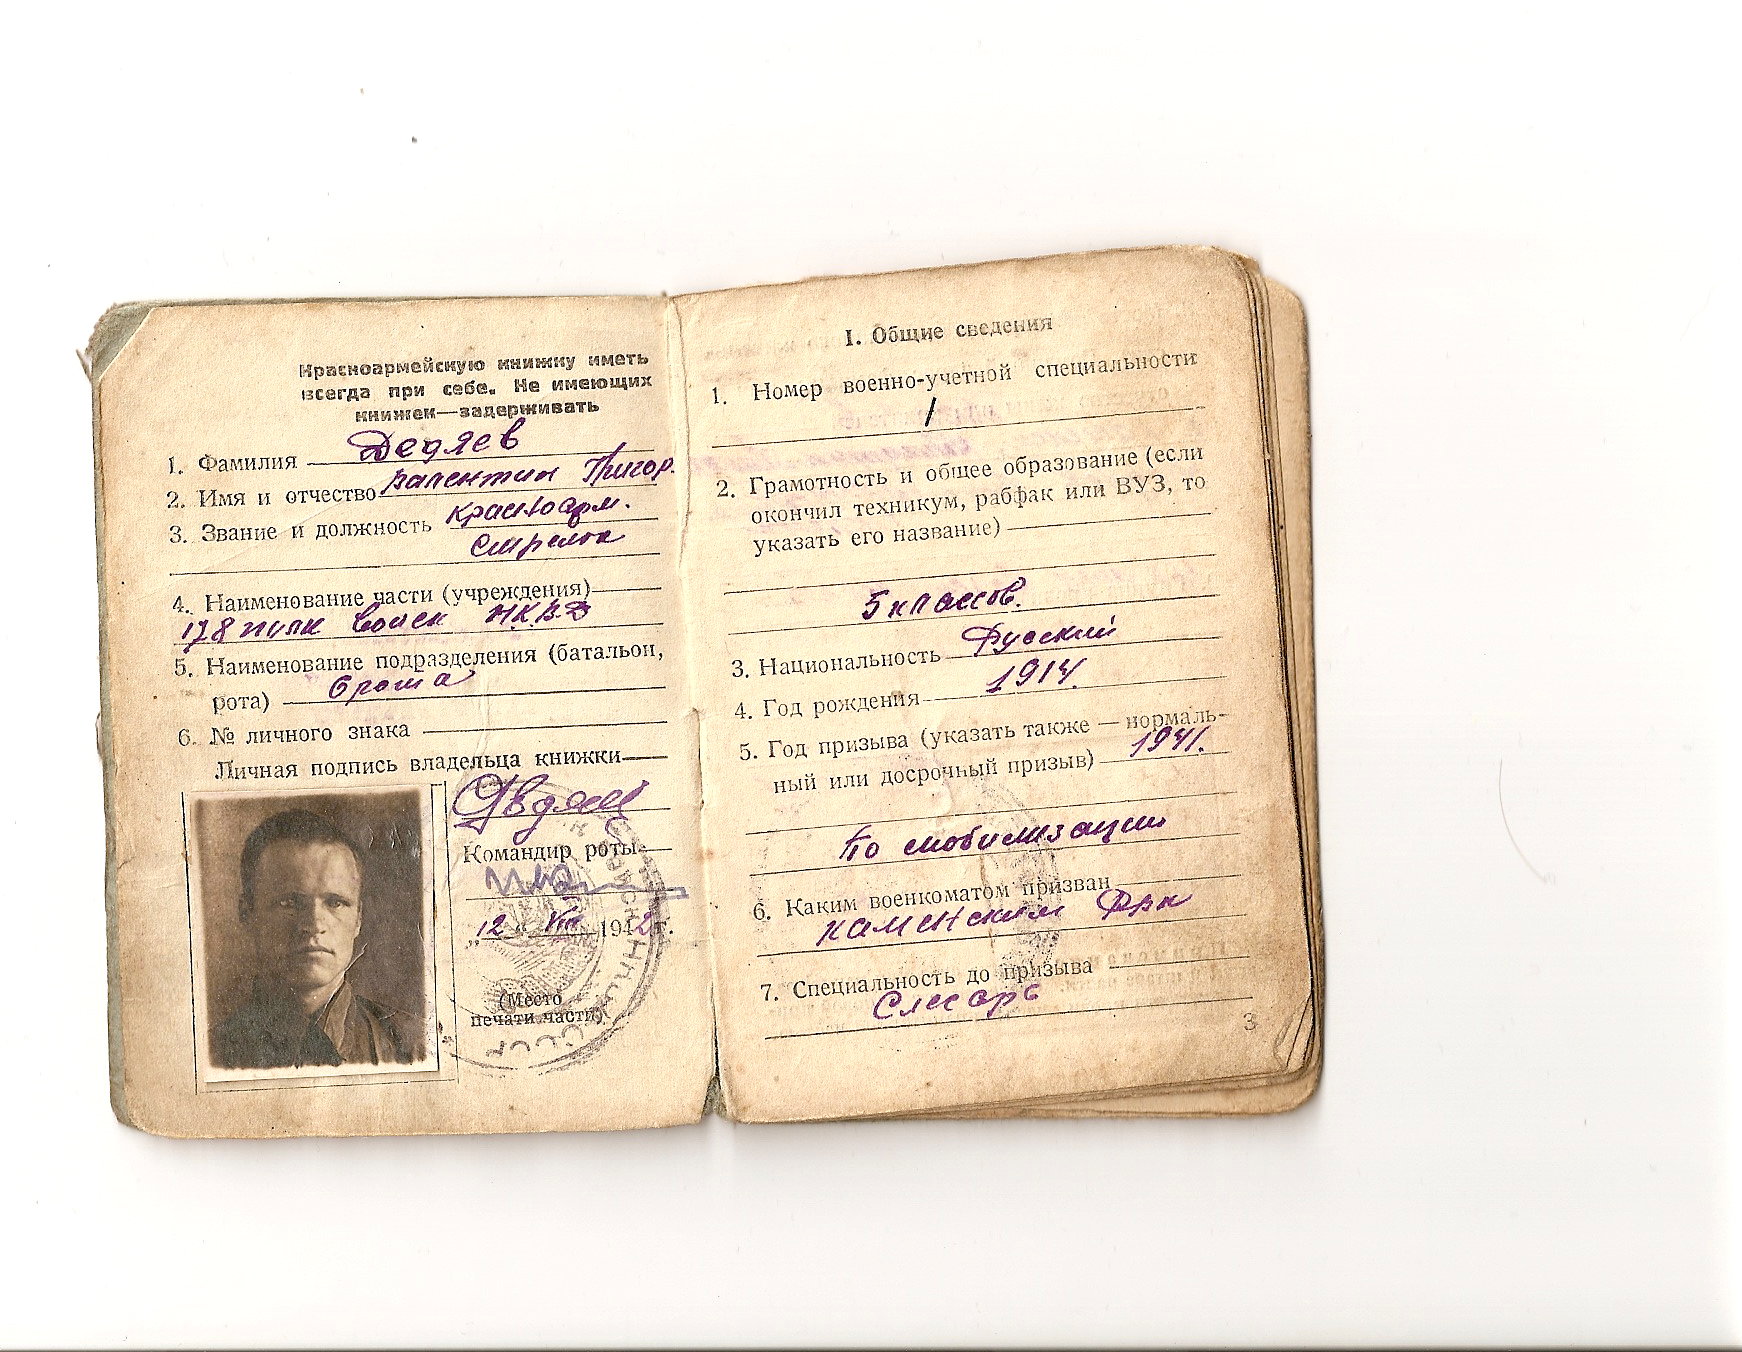 Красноармейскую книжку иметь
всегда при себе. Не имеющих
книжек—задерживать
1. Фамилия Дедяев
2. Имя и отчество Валентин Григор.
3. Звание и должность красноарм.
стрелок
4. Наименование части (учреждения)
178 полк войск Н.К.В.Д
5. Наименование подразделения (батальон,
рота) 6 рота
6. № личного знака
Личная подпись владельца книжки
Командир роты
„12" VIII 1942 г.
(Место
печати части)
I. Общие сведения
1. Номер военно-учетной специальности
/
2. Грамотность и общее образование (если
окончил техникум, рабфак или ВУЗ, то
указать его название)
5 классов.
3. Национальность Русский
4. Год рождения 1914.
5. Год призыва (указать также — нормаль-
ный или досрочный призыв) 1941.
По мобилизации
6. Каким военкоматом призван
Каменским РВК
7. Специальность до призыва
Слесарь
3